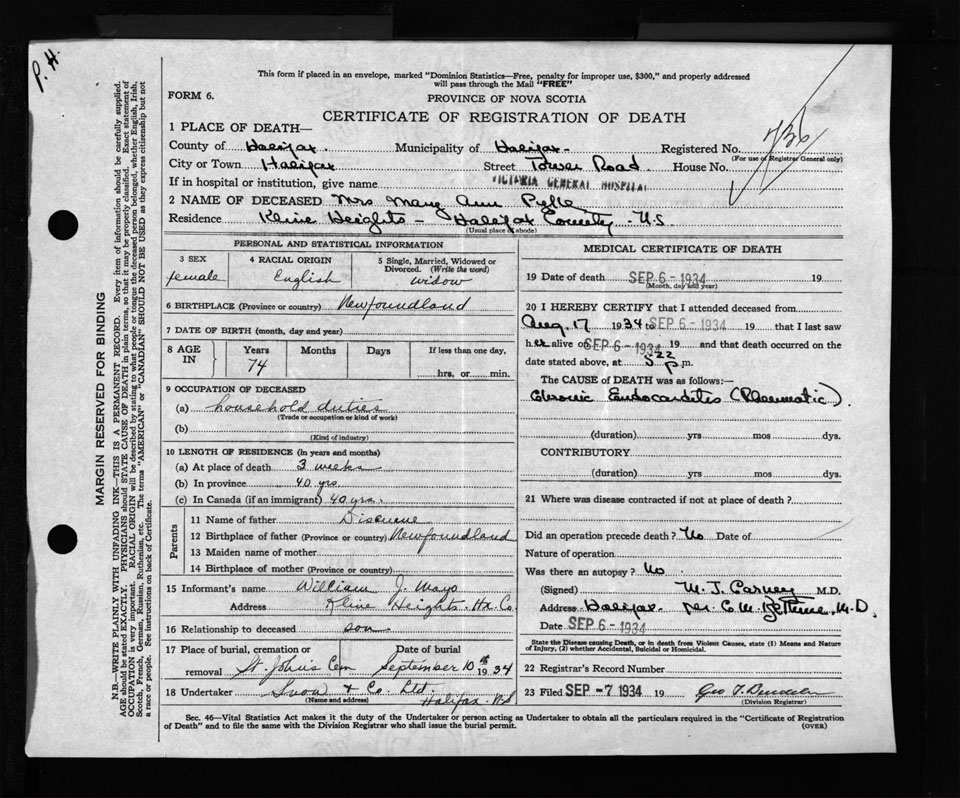 P. H.
This form if placed in an envelope, marked "Dominion Statistics—Free, penalty for improper use, $300," and properly addressed
will pass through the Mail "FREE"
FORM 6.
PROVINCE OF NOVA SCOTIA
CERTIFICATE OF REGISTRATION OF DEATH
736
1 PLACE OF DEATH—
County of Halifax. Municipality of Halifax- Registered No.
(For use of Registrar General only)
City or Town Halifax Street Tower Road. House No.
If in hospital or institution, give name VICTORIA GENERAL HOSPITAL
2 NAME OF DECEASED Mrs Mary Ann Pyke
Residence Kline Heights - Halifax County N.S.
(Usual place of abode)
PERSONAL AND STATISTICAL INFORMATION
3 SEX
female
4 RACIAL ORIGIN
English
5 Single, Married, Widowed or
Divorced. (Write the word)
widow
6 BIRTHPLACE (Province or country) Newfoundland
7 DATE OF BIRTH (month, day and year)
8 AGE IN
Years Months Days If less than one day,
74
hrs. or min.
9 OCCUPATION OF DECEASED
(a) household duties
(Trade or occupation or kind of work)
(b)
(Kind of industry)
10 LENGTH OF RESIDENCE (in years and months)
(a) At place of death 3 weeks
(b) In province 40 yrs.
(c) In Canada (if an immigrant) 40 yrs.
Parents
11 Name of father
12 Birthplace of father (Province or country) Newfoundland
13 Maiden name of mother
14 Birthplace of mother (Province or country)
15 Informant's name William J. Mayo
Address Kline Heights. Hx. Co.
16 Relationship to deceased son
17 Place of burial, cremation or Date of burial
removal St. John's Cem September 10th 1934
18 Undertaker Snow & Co. Ltd.
(Name and address) Halifax. N.S
MEDICAL CERTIFICATE OF DEATH
19 Date of death SEP 6 - 1934 19
(Month, day and year)
20 I HEREBY CERTIFY that I attended deceased from
Aug. 17 1934 to SEP 6 - 1934 19 that I last saw
h er alive on SEP 6 - 1934 19 and that death occurred on the
date stated above, at 5 22 p.m.
The CAUSE of DEATH was as follows:—
Chronic Endocarditis (Rheumatic).
(duration) yrs mos dys.
CONTRIBUTORY
(duration) yrs mos dys.
21 Where was disease contracted if not at place of death?
Did an operation precede death? No Date of
Nature of operation
Was there an autopsy? No
(Signed) M. J. Carney M.D.
Address Halifax. per C. M. Bethune. M.D.
Date SEP 6 - 1934
State the Disease causing Death, or in death from Violent Causes, state (1) Means and Nature
of Injury, (2) whether Accidental, Suicidal or Homicidal.
22 Registrar's Record Number
23 Filed SEP - 7 1934 19 Geo
(Division Registrar)
Sec. 46—Vital Statistics Act makes it the duty of the Undertaker or person acting as Undertaker to obtain all the particulars required in the "Certificate of Registration
of Death" and to file the same with the Division Registrar who shall issue the burial permit. (OVER)
MARGIN RESERVED FOR BINDING
N.B.—WRITE PLAINLY WITH UNFADING INK—THIS IS A PERMANENT RECORD. Every item of information should be carefully supplied.
AGE should be stated EXACTLY. PHYSICIANS should STATE CAUSE OF DEATH in plain terms, so that it may be properly classified. Exact statement of
OCCUPATION is very important. RACIAL ORIGIN will be described by stating to what people or tongue the deceased person belonged, whether English, Irish,
Scotch, French, German, Russian, Ruthenian, etc. The terms "AMERICAN" or "CANADIAN" SHOULD NOT BE USED as they express citizenship but not
a race or people. See instructions on back of Certificate.